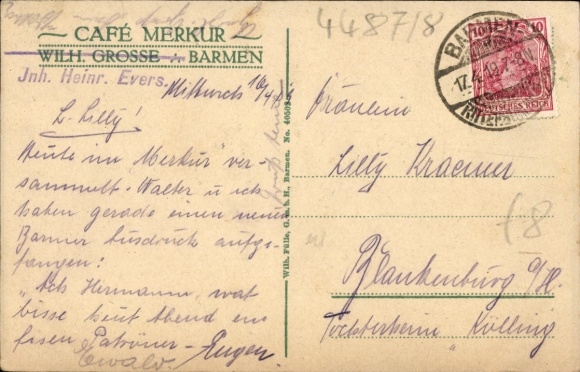 4487/8
CAFÉ MERKUR
WILH. GROSSE BARMEN
Jnh. Heinr. Evers.
Mittwoch 16/4
L. Lilly!
Heute im "Merkur" ver-
sammelt. Walter u. ich
haben gerade einen neuen
Barmer Ausdruck aufge-
fangen:
"Ach Hermann, wat
bisse heut Abend en
fisen Patröner."
Eugen.
Ewald.
Wilh. Fülle, G. m. b. H., Barmen. No.
BARMEN
17.4.19.7-8
RITTERSH
10 10
DEUTSCHES REICH
Fräulein
Lilly Kraemer
f8
Blankenburg a/H.
Töchterheim Kölling